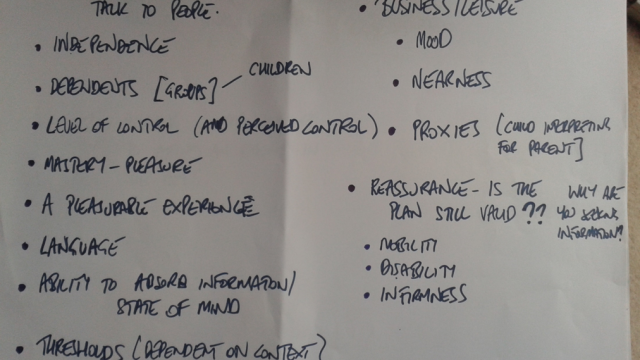 TALK TO PEOPLE.
• INDEPENDENCE
• DEPENDENTS [GROUPS] — CHILDREN
• LEVEL OF CONTROL (AND PERCEIVED CONTROL)
• MASTERY – PLEASURE
• A PLEASURABLE EXPERIENCE
• LANGUAGE
• ABILITY TO ABSORB INFORMATION/
STATE OF MIND
• THRESHOLDS (DEPENDENT ON CONTEXT)
• BUSINESS/LEISURE
• MOOD
• NEARNESS
• PROXIES (CHILD INTERPRETING
FOR PARENT]
• REASSURANCE – IS THE
PLAN STILL VALID??
WHY ARE
YOU SEEKING
INFORMATION?
• MOBILITY
• DISABILITY
• INFIRMNESS